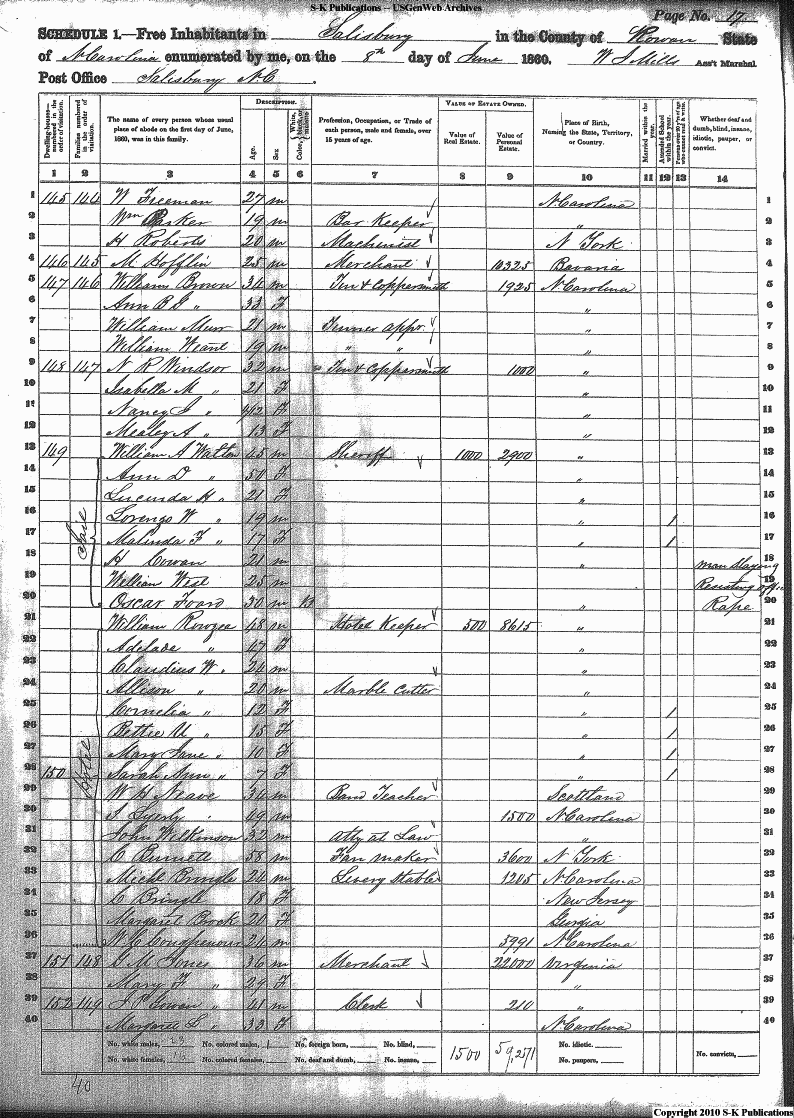 S-K Publications -- USGenWeb Archives
Page No. 17
SCHEDULE 1.—Free Inhabitants in Salisbury in the County of Rowan State
of N Carolina enumerated by me, on the 8th day of June 1860. W J Mills Ass't Marshal
Post Office Salisbury N C.
Dwelling-houses—numbered in the order of visitation. Families numbered in the order of visitation. The name of every person whose usual place of abode on the first day of June, 1860, was in this family. DESCRIPTION. Age. Sex. Color, Profession, Occupation, or Trade of each person, male and female, over 15 years of age. VALUE OF ESTATE OWNED. Value of Real Estate. Value of Personal Estate. Place of Birth, Naming the State, Territory, or Country. Married within the year. Attended School within the year. Whether deaf and dumb, blind, insane, idiotic, pauper, or convict.
1 2 3 4 5 6 7 8 9 10 11 12 13 14
1 145 144 W Freeman 27 m N Carolina 1
2 Wm Parker 19 m Bar Keeper " 2
3 H Roberts 20 m Machenist N York 3
4 146 145 M Hofflin 25 m Merchant 10325 Bavaria 4
5 147 146 William Brown 34 m Tin & Coppersmith 1925 N Carolina 5
6 Ann B " 33 F " 6
7 William Murr 21 m Tinner appr. " 7
8 William Weant 19 m " " " 8
9 148 147 N R Windsor 32 m Tin & Coppersmith 1000 " 9
10 Isabella M " 21 F " 10
11 Nancy J " F " 11
12 Mealey A " 13 F " 12
13 149 William A Walton 45 m Sheriff 1000 2900 " 13
14 Ann D " 50 F " 14
15 Lucunda H " 21 F " 15
16 Lorenzo W " 19 m " 1 16
17 Malinda F " 17 F " 1 17
18 H Cowan 21 m " man slaying 18
19 William West 25 m Resisting offic 19
20 Oscar Foard 30 m " Rape 20
Jail
21 William Rowzea 48 m Hotel Keeper 500 8615 " 21
22 Adelade " 47 F " 22
23 Claudius W " 24 m " 23
24 Allison " 20 m Marble Cutter " 24
25 Cornelia " 12 F " 1 25
26 Bettie U " 15 F " 1 26
27 Mary Jane " 10 F " 1 27
28 150 Sarah Ann " 7 F " 1 28
Hotel
29 W H Neave 34 m Band Teacher Scottland 29
30 Lyerly 49 m 1500 N Carolina 30
31 John Wilkinson 32 m atty at Law " 31
32 C Burnett 58 m Fan maker 3600 N York 32
33 Michl Pringle 24 m Livery Stable 1205 N Carolina 33
34 C Pringle 18 F New Jersey 34
35 Margaret Brock 20 F Georgia 35
36 24 m 5991 N Carolina 36
37 151 148 M Jones 36 m Merchant 22000 Virginia 37
38 Mary F " 29 F " 38
39 152 149 J P Gowan " 41 m Clerk 210 " 39
40 Margaret L " 33 F N Carolina 40
No. white males, 23 No. colored males, 1 No. foreign born, No. blind, 1500 59,2571 No. idiotic. No. convicts,
No. white females, 16 No. colored females, No. deaf and dumb, No. insane, No. paupers,
40
Copyright 2010 S-K Publications